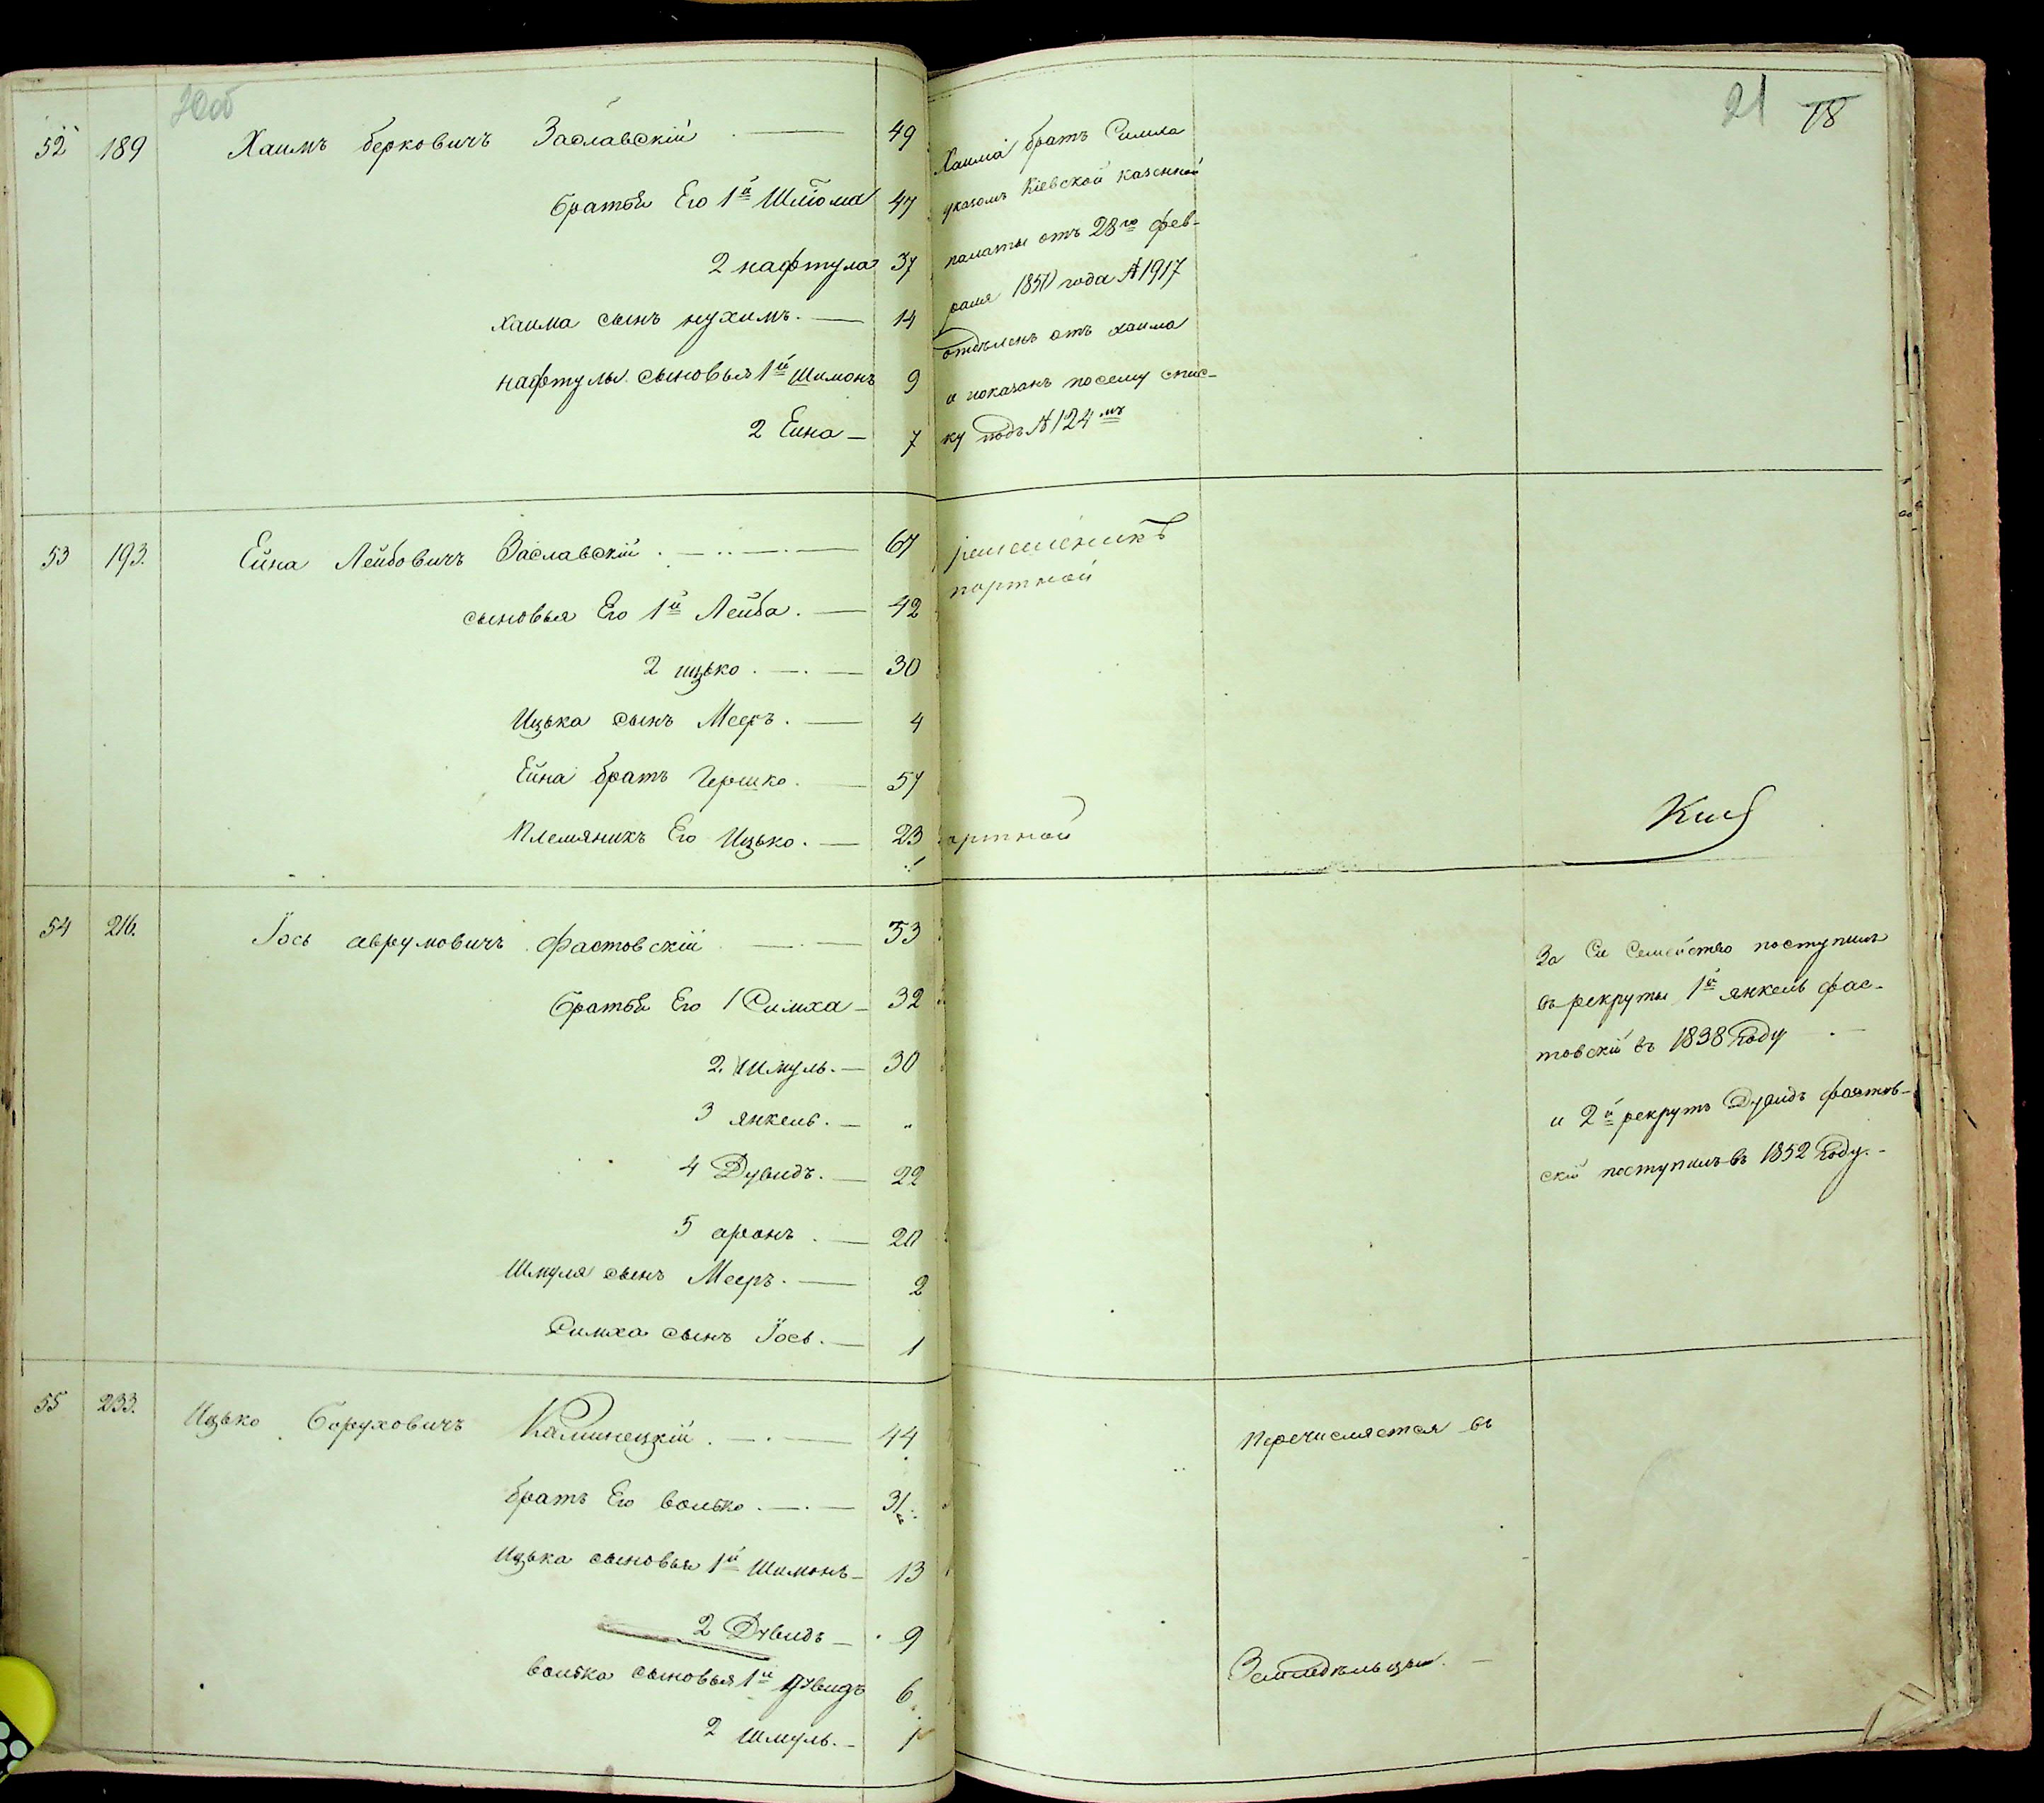 20об
52 189 Хаимъ берковичъ Заславскій 49
братья Его 1й Шліома 47
2 нафтула 37
Хаима сынъ нухимъ. 14
нафтулы сыновья 1й Шимонъ 9
2 Ейна 7
53 193. Ейна Лейбовичъ Заславскій 67
сыновья Его 1й Лейба. 42
2 ицько. 30
Ицька сынъ Меєръ. 4
Ейна братъ Гершко. 57
Племяникъ Его Ицько. 23
54 216. Іось аврумовичъ Фастовскій 53
братья Его 1 Симха 32
2 Шмуль. 30
3 янкель. "
4 Дувидъ. 22
5 аронъ. 20
Шмуля сынъ Меєръ. 2
Симха сынъ Іось. 1
55 233. Ицько Боруховичъ Калинецкій. 44
братъ Его волько. 31
Ицька сыновья 1й Шимонъ 13
2 Дувидъ 9
волька сыновья 1й Дувидъ 6
2 Шмуль. 1
21 78
Хаима братъ Симха
указомъ Кіевской казенной
палаты отъ 28го фев-
раля 1851 года № 1917
отдѣленъ отъ хаима
и показанъ посему спис-
ку подъ № 124мъ
ремесленикъ
портной
портной
За Сіе Семейство поступилъ
въ рекруты 1й янкель фас-
товскій въ 1838 Году
и 2й рекрутъ Дувидъ фастов-
скій поступилъ въ 1852 Году.
перечисляется въ
Земледѣльцы.